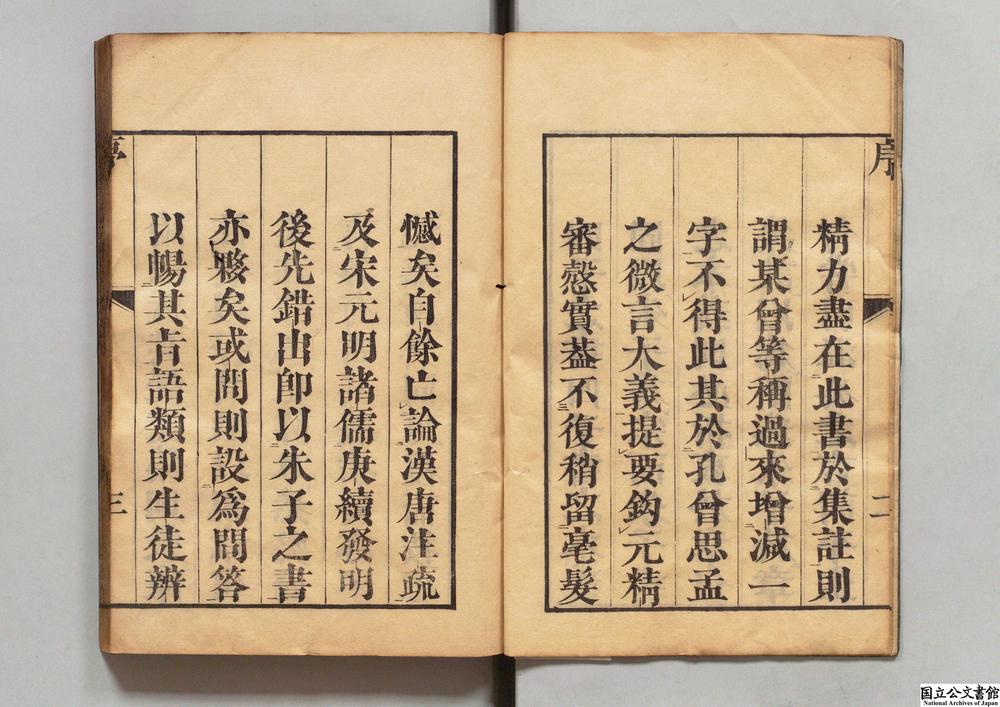 序
二
精力盡在此書於集註則
謂某曾等稱過來增減一
字不得此其於孔曾思孟
之微言大義提要鈎元精
審慤實葢不復稍留毫髮
憾矣自餘亡論漢唐注疏
及宋元明諸儒庚續發明
後先錯出卽以朱子之書
亦夥矣或問則設爲問答
以暢其旨語類則生徒辨
序
三
国立公文書館
National Archives of Japan